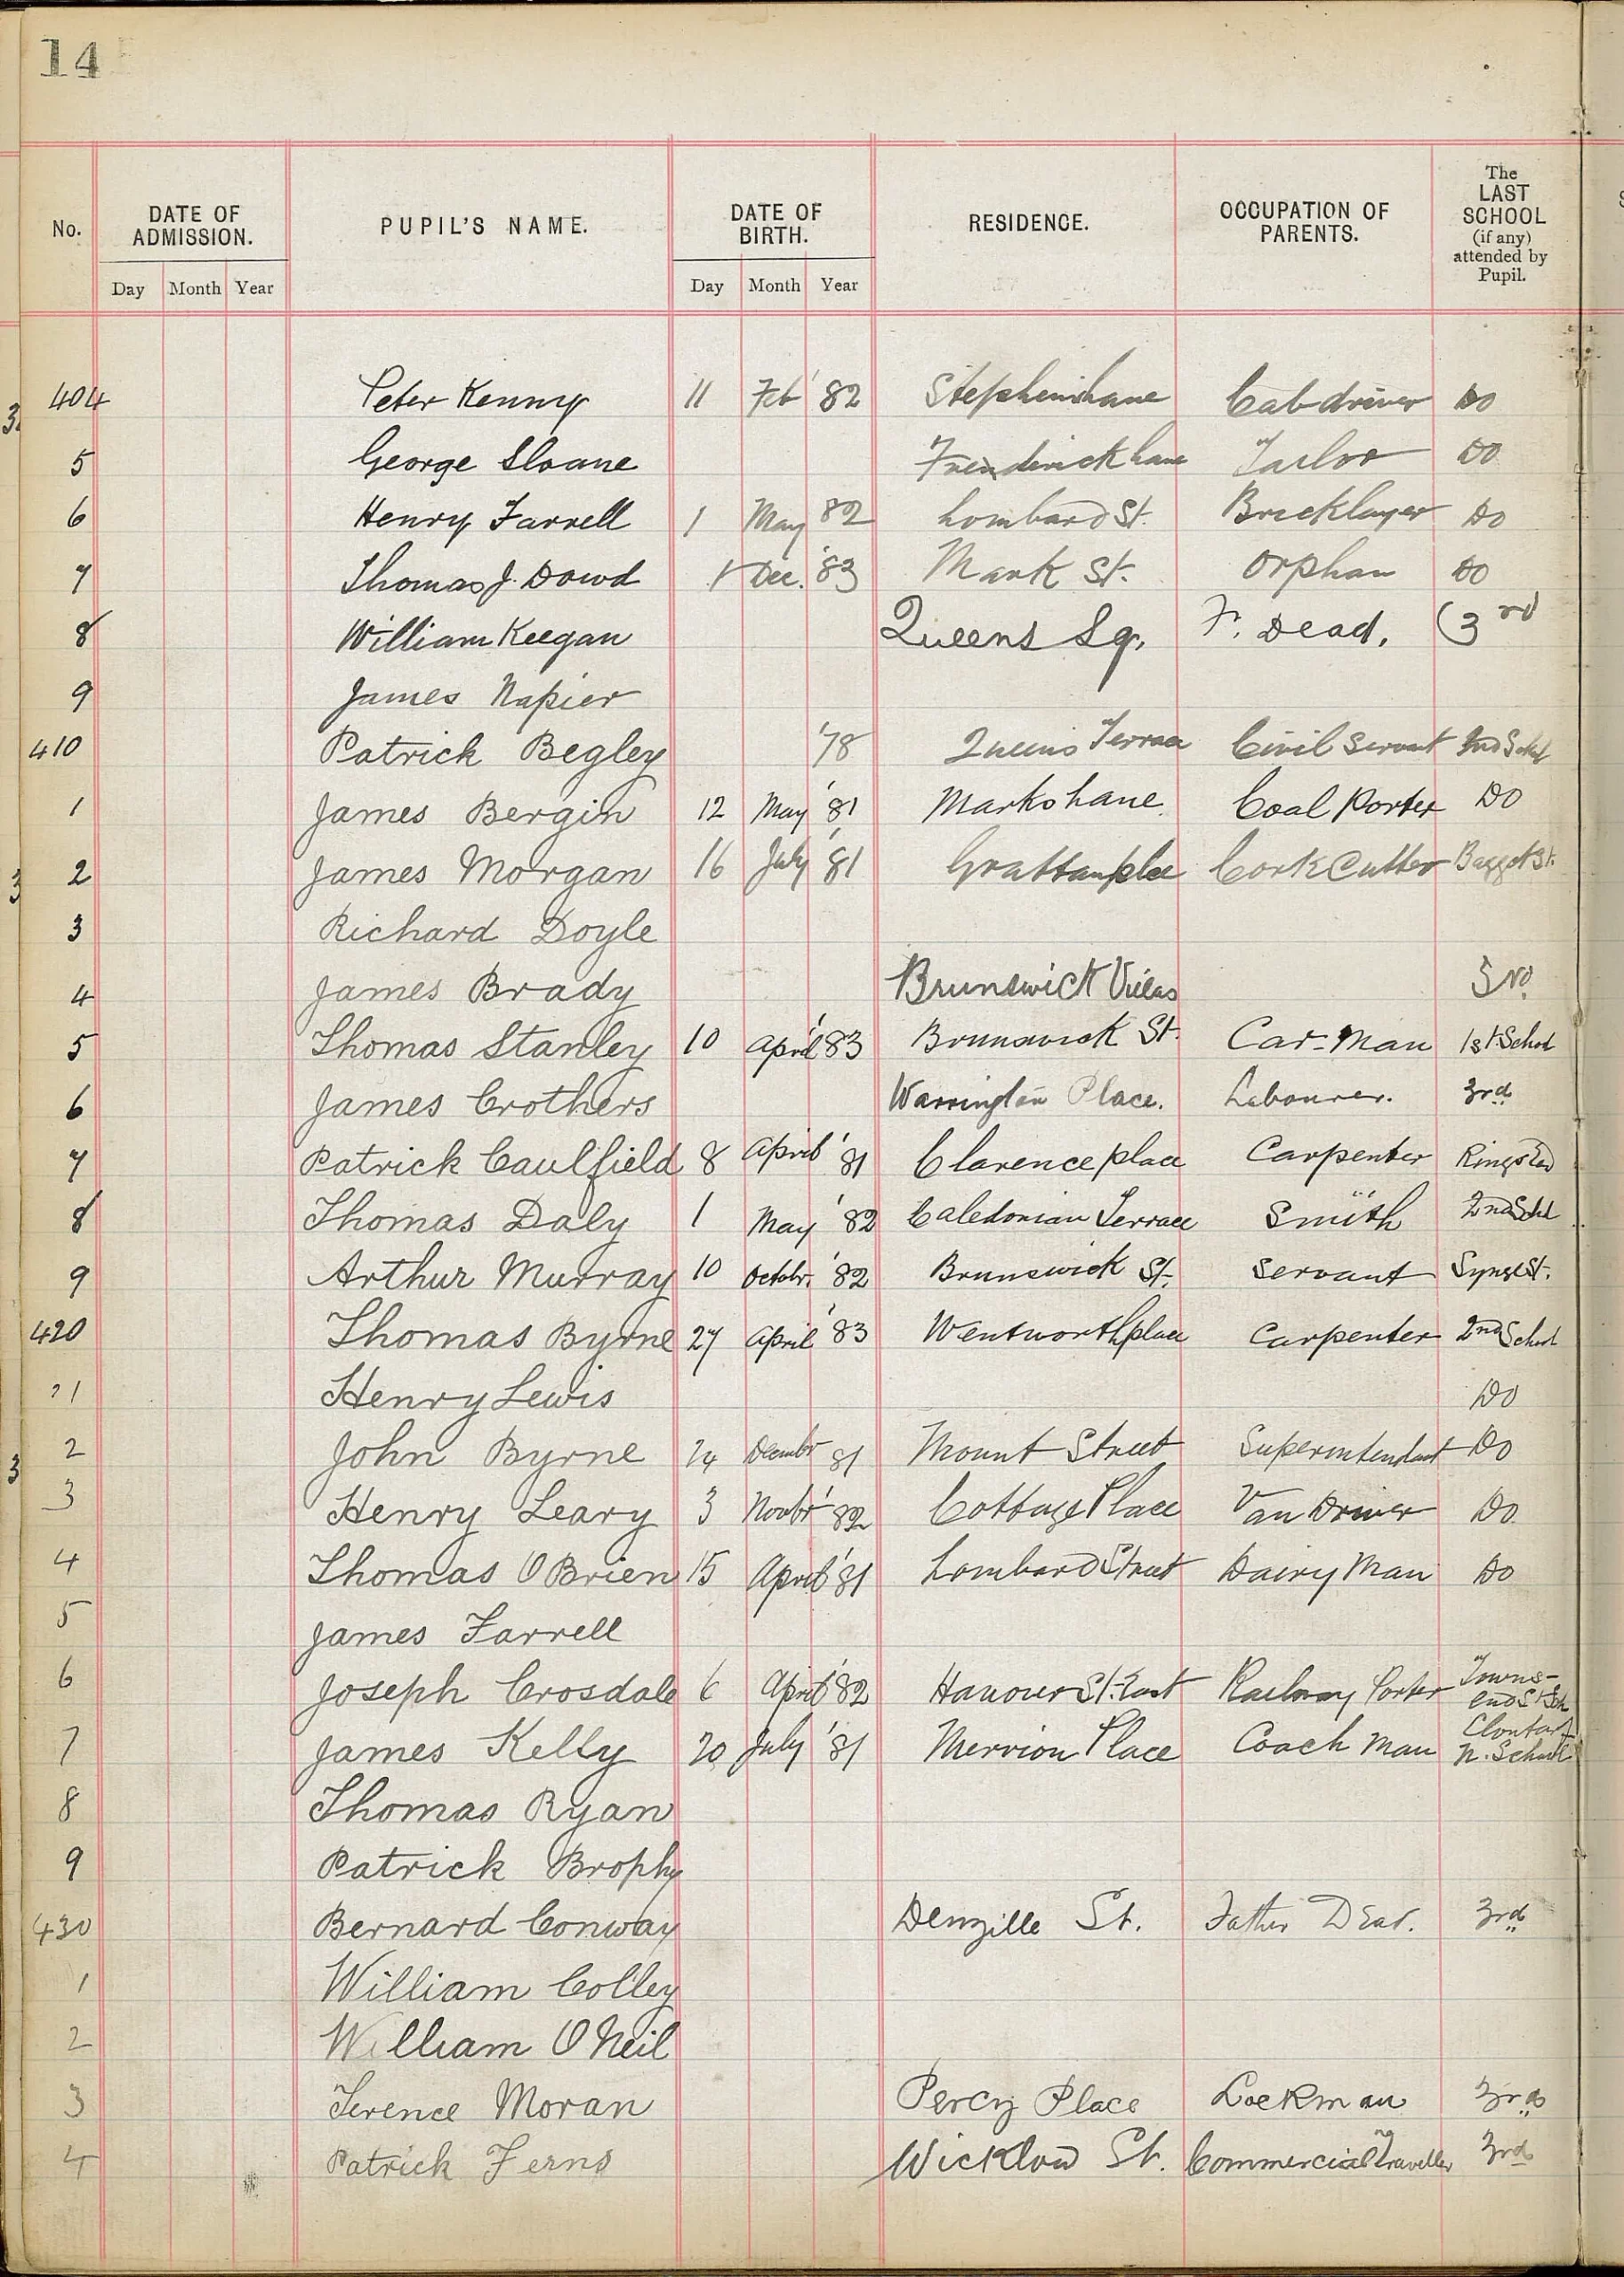 14
No. DATE OF ADMISSION. PUPIL'S NAME. DATE OF BIRTH. RESIDENCE. OCCUPATION OF PARENTS. The LAST SCHOOL (if any) attended by Pupil.
Day Month Year Day Month Year
404 Peter Kenny 11 Feb '82 Stephens Lane Cab driver Do
5 George Sloane Frenderick Lane Tailor Do
6 Henry Farrell 1 May 82 Lombard St. Bricklayer Do
7 Thomas J. Dowd 1 Dec. '83 Mark St. Orphan Do
8 William Keegan Queens Sq. F. Dead. (3rd
9 James Napier
410 Patrick Begley '78 Queens Terrace Civil Servant 2nd Schl
1 James Bergin 12 May '81 Marks Lane Coal Porter Do
2 James Morgan 16 July '81 Grattan place Cork Cutter Baggot St.
3 Richard Doyle
4 James Brady Brunswick Villas
5 Thomas Stanley 10 April '83 Brunswick St. Car-Man 1st School
6 James Crothers Warrington Place. Labourer. 3rd
7 Patrick Caulfield 8 April '81 Clarence place Carpenter Ringsend
8 Thomas Daly 1 May '82 Caledonian Terrace Smith 2nd Schl
9 Arthur Murray 10 Octobr. '82 Brunswick St. Servant Synge St.
420 Thomas Byrne 27 April '83 Wentworth place Carpenter 2nd School
21 Henry Lewis Do
2 John Byrne 24 Decembr 81 Mount Street Superintendant Do
3 Henry Leary 3 Novbr '82 Cottage Place Van Driver Do
4 Thomas O Brien 15 April '81 Lombard Street Dairy Man Do
5 James Farrell
6 Joseph Crosdale 6 April '82 Hanover St. East Railway Porter Towns-end St Sch
7 James Kelly 20 July '81 Merrion Place Coach Man Clontarf N. School
8 Thomas Ryan
9 Patrick Brophy
430 Bernard Conway Denzille St. Father Dead. 3rd
1 William Colley
2 William O Neil
3 Terence Moran Percy Place Lockman 3rd
4 Patrick Ferns Wicklow St. Commercial Traveller 3rd